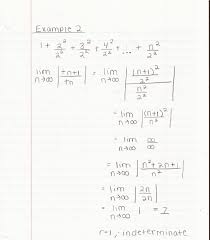 Example 2
1 + 2²/2² + 3²/2² + 4²/2² + ... + n²/2²
lim n→∞ |tn+1/tn| = lim n→∞ |((n+1)²/2²)/(n²/2²)|
= lim n→∞ |(n+1)²/n²|
= lim n→∞ ∞/∞
= lim n→∞ |n²+2n+1/n²|
= lim n→∞ |2n/2n|
= lim n→∞ 1 = 1
r=1, indeterminate